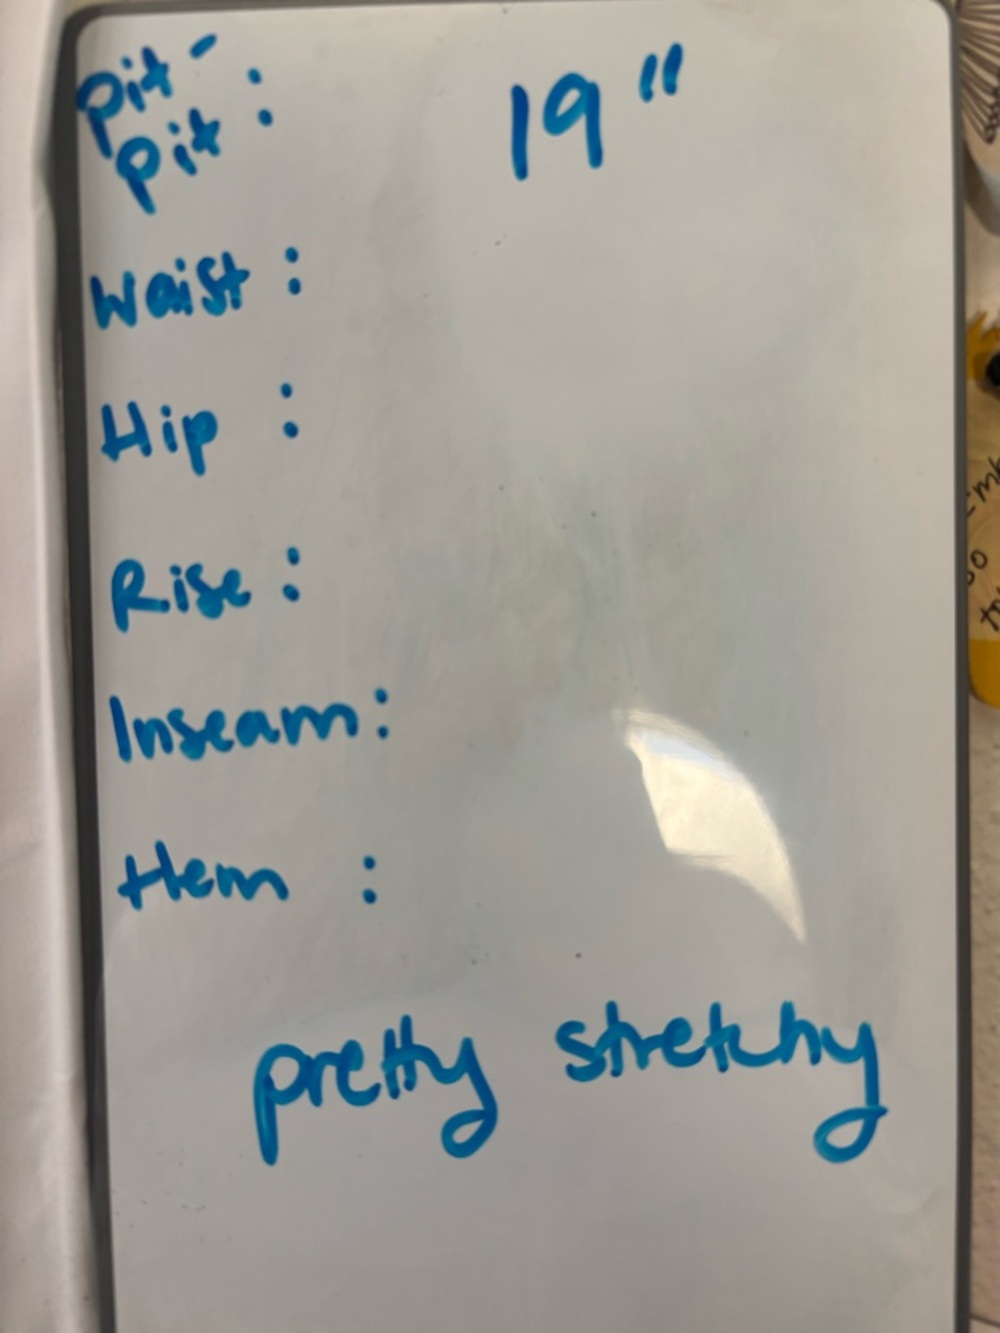 Pit-
Pit : 19"
Waist :
Hip :
Rise :
Inseam:
Hem :
pretty stretchy
so